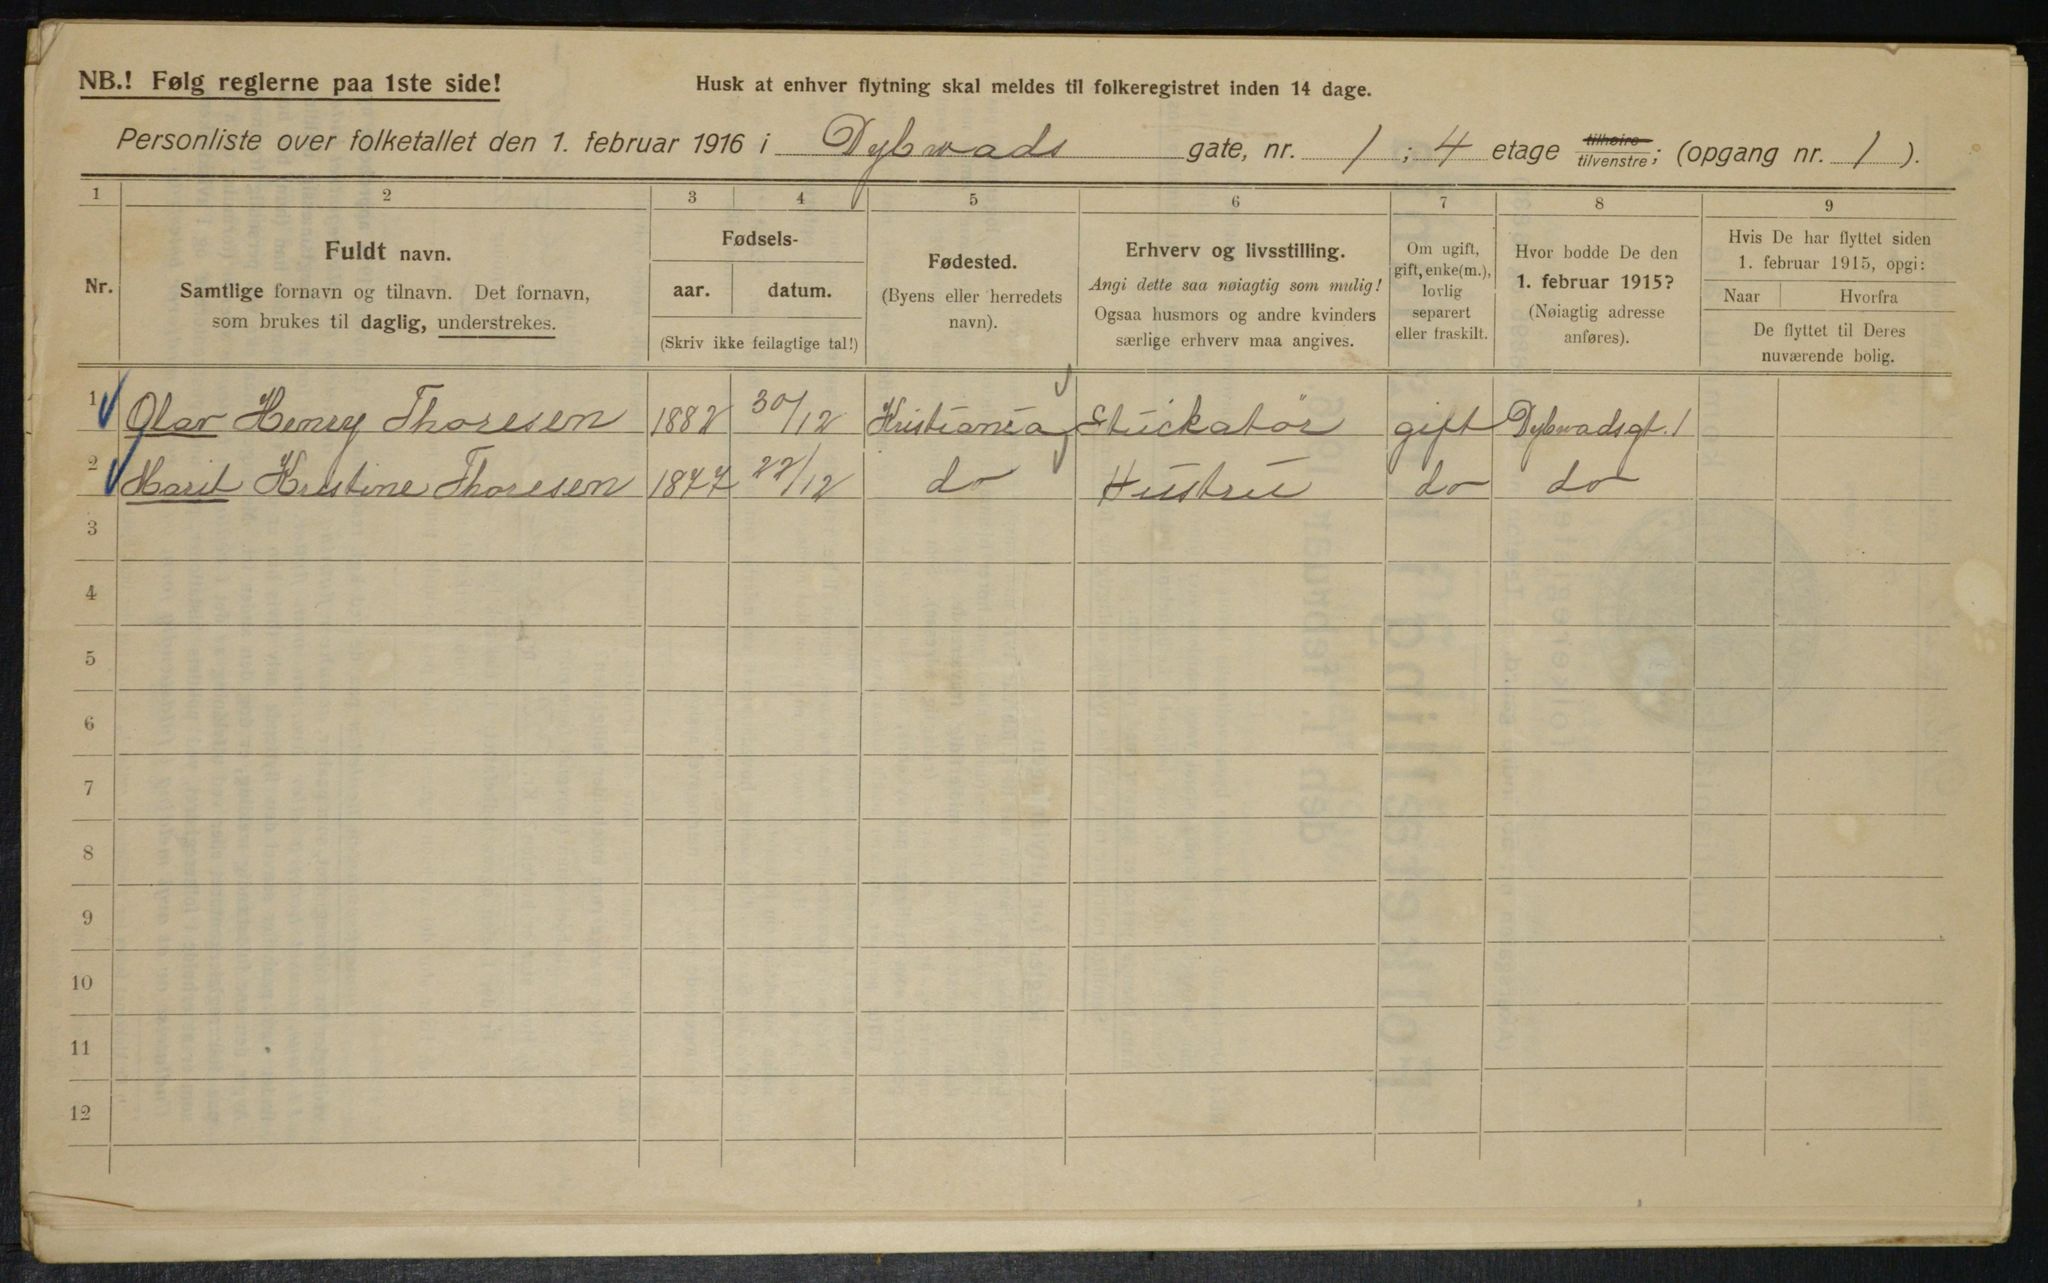 NB.! Følg reglerne paa 1ste side!
Husk at enhver flytning skal meldes til folkeregistret inden 14 dage.
Personliste over folketallet den 1. februar 1916 i Dybwads gate, nr. 1 ; 4 etage tilhøire tilvenstre; (opgang nr. 1 ).
1 2 3 4 5 6 7 8 9
Nr.
Fuldt navn.
Samtlige fornavn og tilnavn. Det fornavn,
som brukes til daglig, understrekes.
Fødsels-
aar. datum.
(Skriv ikke feilagtige tal!)
Fødested.
(Byens eller herredets
navn).
Erhverv og livsstilling.
Angi dette saa nøiagtig som mulig!
Ogsaa husmors og andre kvinders
særlige erhverv maa angives.
Om ugift,
gift, enke(m.),
lovlig
separert
eller fraskilt.
Hvor bodde De den
1. februar 1915?
(Nøiagtig adresse
anføres).
Hvis De har flyttet siden
1. februar 1915, opgi:
Naar Hvorfra
De flyttet til Deres
nuværende bolig.
1 Olav Henry Thoresen 1882 30/12 Kristiania Stuckatör gift Dybwadsgt. 1
2 Marit Kristine Thoresen 1877 22/12 do Hustru do do
3
4
5
6
7
8
9
10
11
12